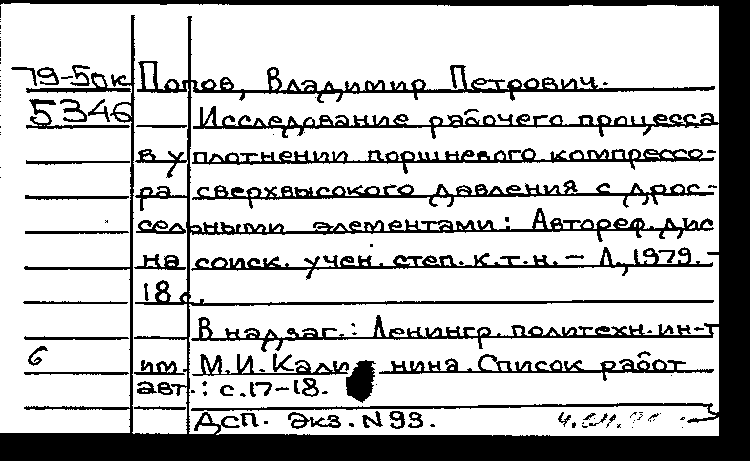 79-5ок Попов, Владимир Петрович.
5346 Исследование рабочего процесса
в уплотнении поршневого компрессо-
ра сверхвысокого давления с дрос-
сельными элементами: Автореф. дис
на соиск. учен. степ. к.т.н. – Л., 1979. –
18 с.
В надзаг.: Ленингр. политехн. ин-т
6 им. М.И. Кали нина. Список работ
авт.: с. 17–18.
ДСП. Экз. N 93.